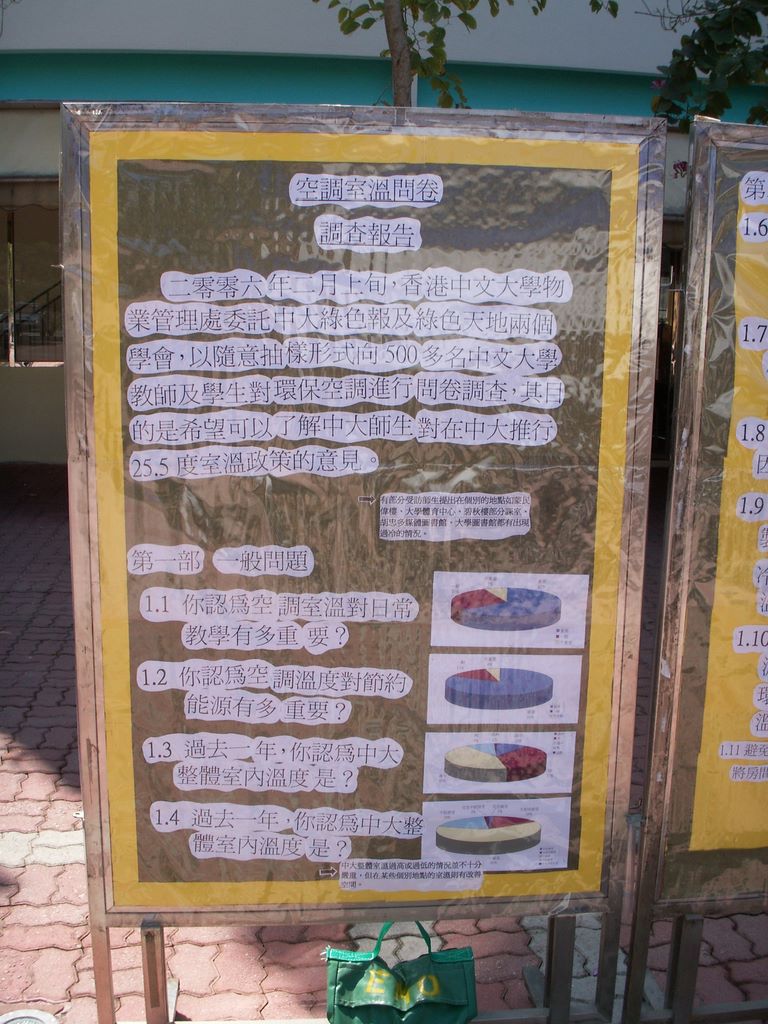 空調室溫問卷
調查報告
二零零六年二月上旬，香港中文大學物
業管理處委託中大綠色報及綠色天地兩個
學會，以隨意抽樣形式向500多名中文大學
教師及學生對環保空調進行問卷調查，其目
的是希望可以了解中大師生對在中大推行
25.5度室溫政策的意見。
有部分受訪師生提出在個別的地點如
偉樓、大學體育中心、碧秋樓部分課室、
胡忠多媒體圖書館、大學圖書館都有出現
過冷的情況。
第一部 一般問題
1.1 你認為空調室溫對日常
教學有多重要？
1.2 你認為空調溫度對節約
能源有多重要？
1.3 過去一年，你認為中大
整體室內溫度是？
1.4 過去一年，你認為中大整
體室內溫度是？
中大整體室溫過高或過低的情況並不十分
嚴重，但在某些個別地點的室溫則有改善
空間。
第
1.6
1.7
1.8
因
1.9
冷
溫
1.10
環
溫
1.11 避免
將房間